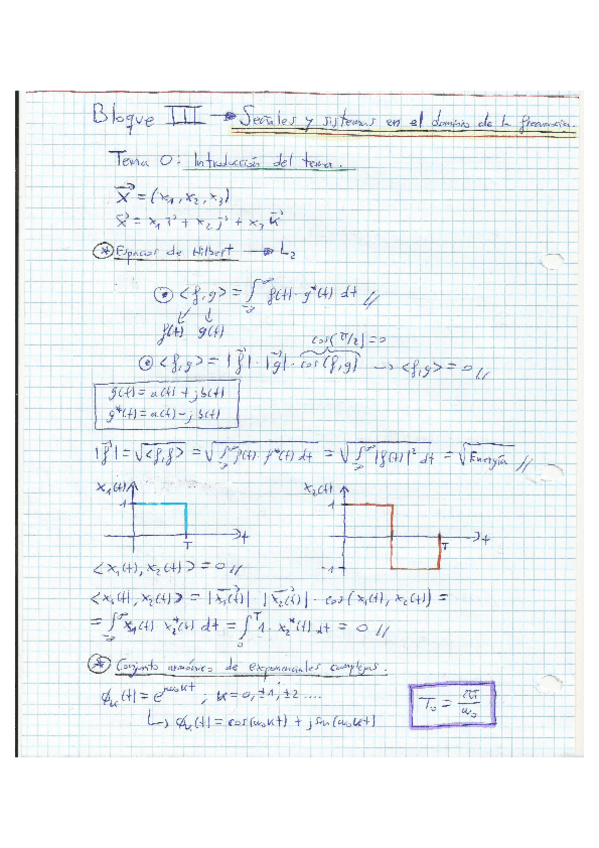 Bloque III → Señales y sistemas en el dominio de la frecuencia.
Tema 0: Introducción del tema.
x⃗ = (x₁, x₂, x₃)
x⃗ = x₁ i⃗ + x₂ j⃗ + x₃ k⃗
* Espacios de Hilbert → L₂
• <f,g> = ∫_{-∞}^{∞} f(t)·g*(t) dt //
f(t) g(t)
cos(π/2)=0
• <f,g> = |f⃗|·|g⃗|·cos(f,g) → <f,g> = 0 //
g(t) = a(t) + jb(t)
g*(t) = a(t) - jb(t)
|f⃗| = √<f,f> = √∫_{-∞}^{∞} f(t)·f*(t) dt = √∫_{-∞}^{∞} |f(t)|² dt = √Energía //
x₁(t)
1
T
t
x₂(t)
1
T
t
-1
<x₁(t), x₂(t)> = 0 //
<x₁(t), x₂(t)> = |x₁(t)|·|x₂(t)|·cos(x₁(t), x₂(t)) =
= ∫_{-∞}^{∞} x₁(t)·x₂*(t) dt = ∫_0^T 1·x₂*(t) dt = 0 //
* Conjunto armónico de exponenciales complejas.
ϕₖ(t) = e^{jω₀kt} ; k = 0, ±1, ±2 ....
↳ ϕₖ(t) = cos(ω₀kt) + j sen(ω₀kt)
T₀ = 2π/ω₀